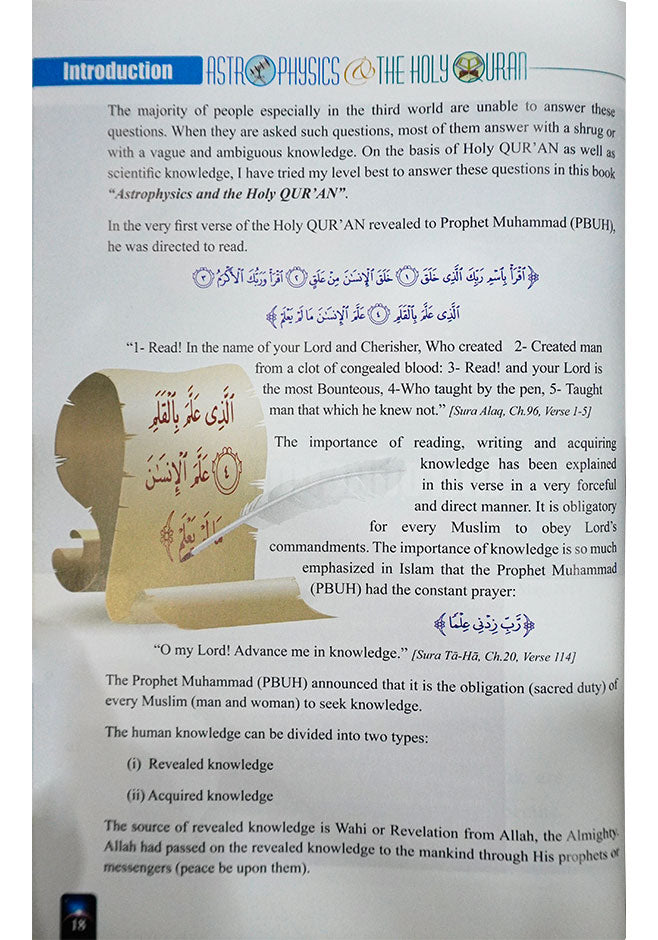 Introduction
ASTROPHYSICS & THE HOLY QURAN
The majority of people especially in the third world are unable to answer these
questions. When they are asked such questions, most of them answer with a shrug or
with a vague and ambiguous knowledge. On the basis of Holy QUR'AN as well as
scientific knowledge, I have tried my level best to answer these questions in this book
“Astrophysics and the Holy QUR'AN”.
In the very first verse of the Holy QUR'AN revealed to Prophet Muhammad (PBUH),
he was directed to read.
﴿ٱقۡرَأۡ بِٱسۡمِ رَبِّكَ ٱلَّذِى خَلَقَ ۝١ خَلَقَ ٱلۡإِنسَـٰنَ مِنۡ عَلَقٍ ۝٢ ٱقۡرَأۡ وَرَبُّكَ ٱلۡأَكۡرَمُ ۝٣
ٱلَّذِى عَلَّمَ بِٱلۡقَلَمِ ۝٤ عَلَّمَ ٱلۡإِنسَـٰنَ مَا لَمۡ يَعۡلَمۡ﴾
“1- Read! In the name of your Lord and Cherisher, Who created 2- Created man
from a clot of congealed blood: 3- Read! and your Lord is
the most Bounteous, 4-Who taught by the pen, 5- Taught
man that which he knew not.” [Sura Alaq, Ch.96, Verse 1-5]
ٱلَّذِى عَلَّمَ بِٱلۡقَلَمِ
۝٤ عَلَّمَ ٱلۡإِنسَـٰنَ
مَا لَمۡ يَعۡلَمۡ﴾
The importance of reading, writing and acquiring
knowledge has been explained
in this verse in a very forceful
and direct manner. It is obligatory
for every Muslim to obey Lord's
commandments. The importance of knowledge is so much
emphasized in Islam that the Prophet Muhammad
(PBUH) had the constant prayer:
﴿رَّبِّ زِدۡنِى عِلۡمًا﴾
“O my Lord! Advance me in knowledge.” [Sura Tā-Hā, Ch.20, Verse 114]
The Prophet Muhammad (PBUH) announced that it is the obligation (sacred duty) of
every Muslim (man and woman) to seek knowledge.
The human knowledge can be divided into two types:
(i) Revealed knowledge
(ii) Acquired knowledge
The source of revealed knowledge is Wahi or Revelation from Allah, the Almighty.
Allah had passed on the revealed knowledge to the mankind through His prophets or
messengers (peace be upon them).
18